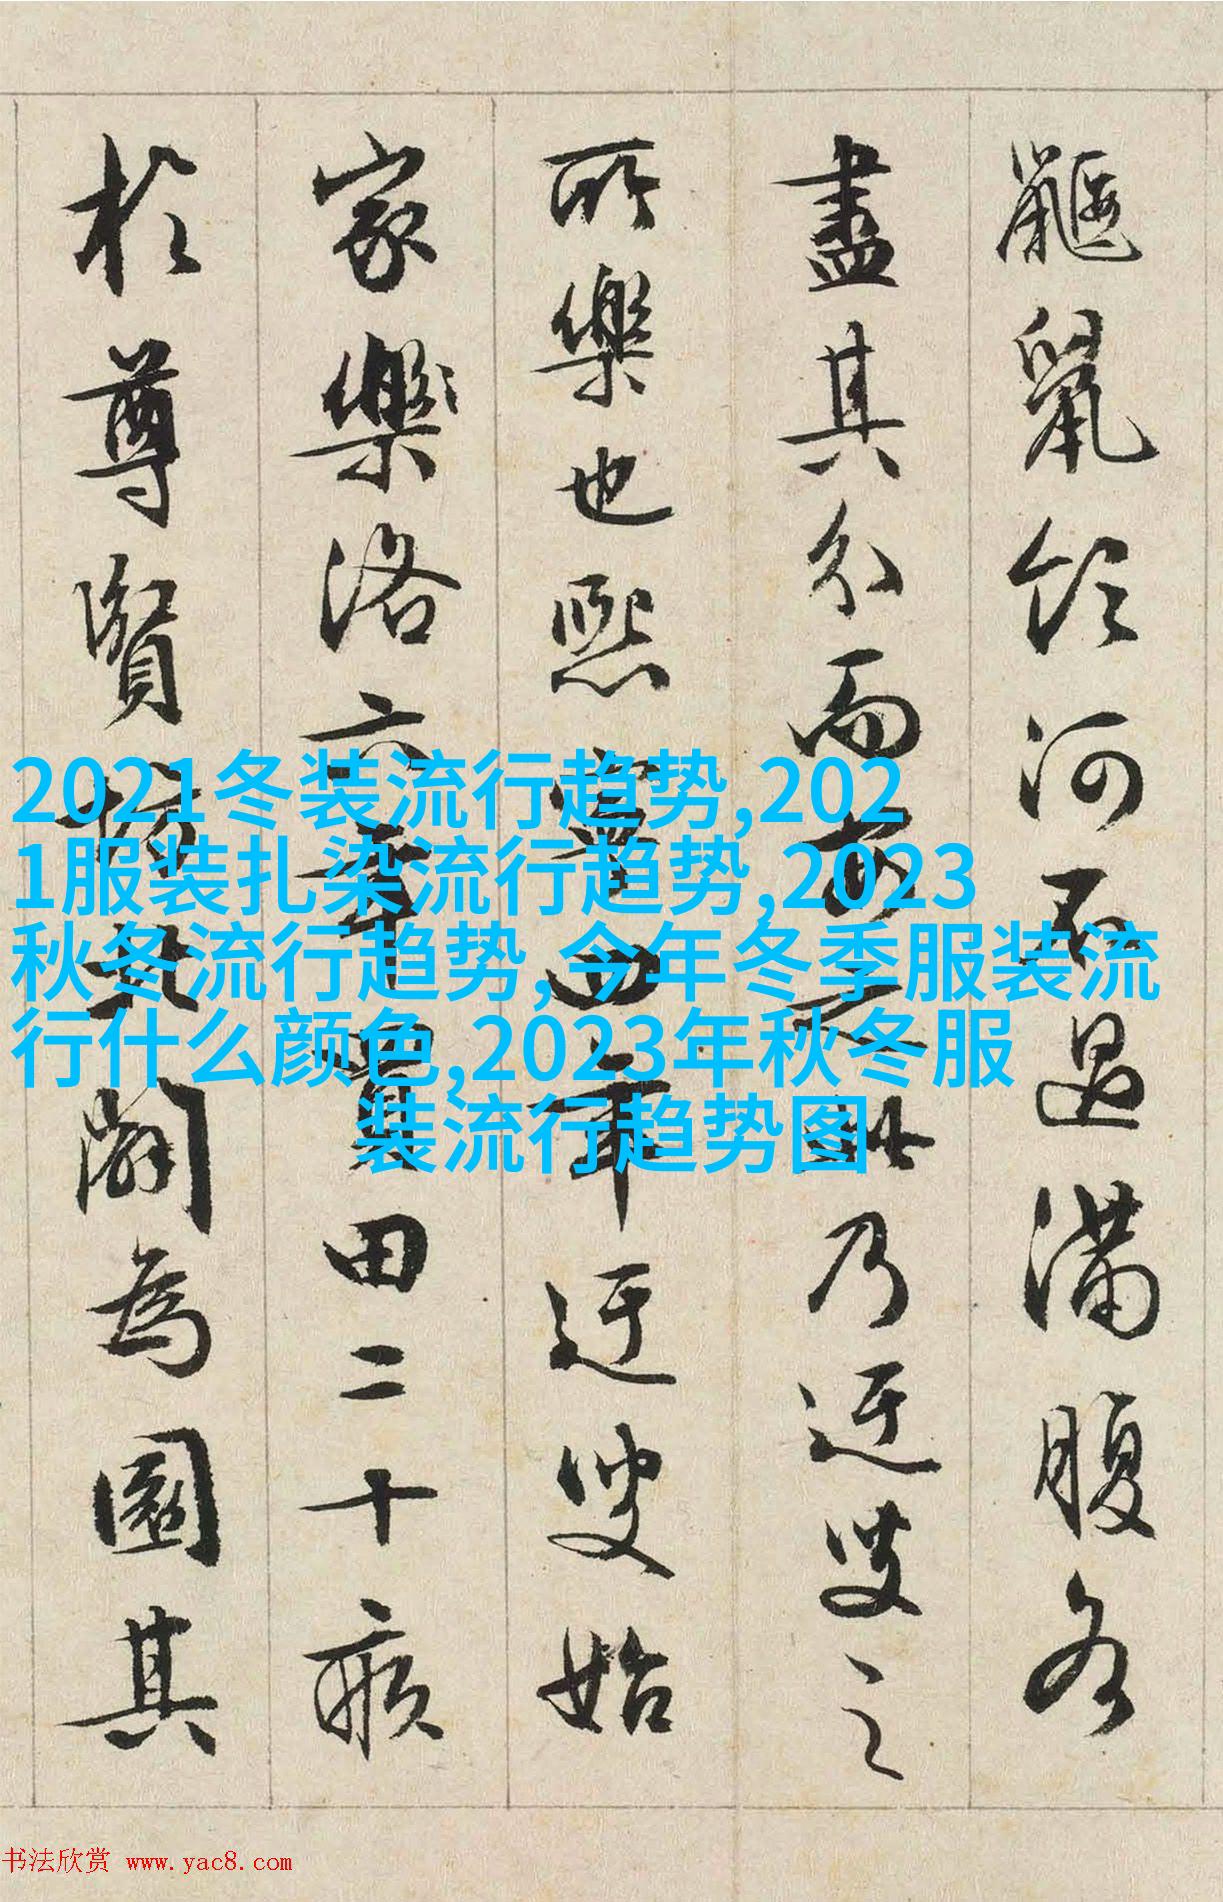 鼴鼠飲河不過滿腹各
盡其分而安之此乃迂叟之
所樂也熙寧四年迂叟始
家樂洛六年買田二十畝
於尊賢坊北闢為園其
2021冬装流行趋势,202
1服装扎染流行趋势,2023
秋冬流行趋势,今年冬季服装流
行什么颜色,2023年秋冬服
装流行趋势图
书法欣赏 www.yac8.com